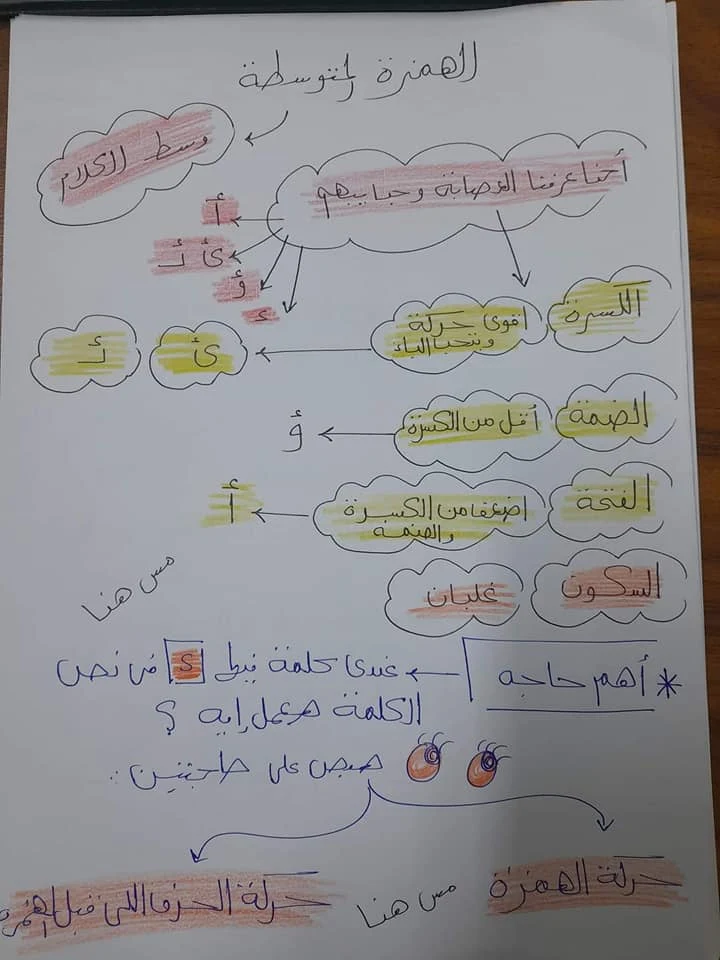 الهمزة المتوسطة
وسط الكلام
أحنا عرفنا العصابة وحبايبهم
أ
ئ ئـ
ؤ
ء
الكسرة
اقوى حركة
وبتحب الياء
ئ
ئـ
الضمة
أقل من الكسرة
ؤ
الفتحة
اضعف من الكسرة
والضمة
أ
السكون
غلبان
مس هنا
* أهم حاجه
عندى كلمة فيها ء فى نص
الكلمة هعمل إيه ؟
هبص على حاجتين :
حركة الهمزة
مس هنا
حركة الحرف اللى قبل الهمزة